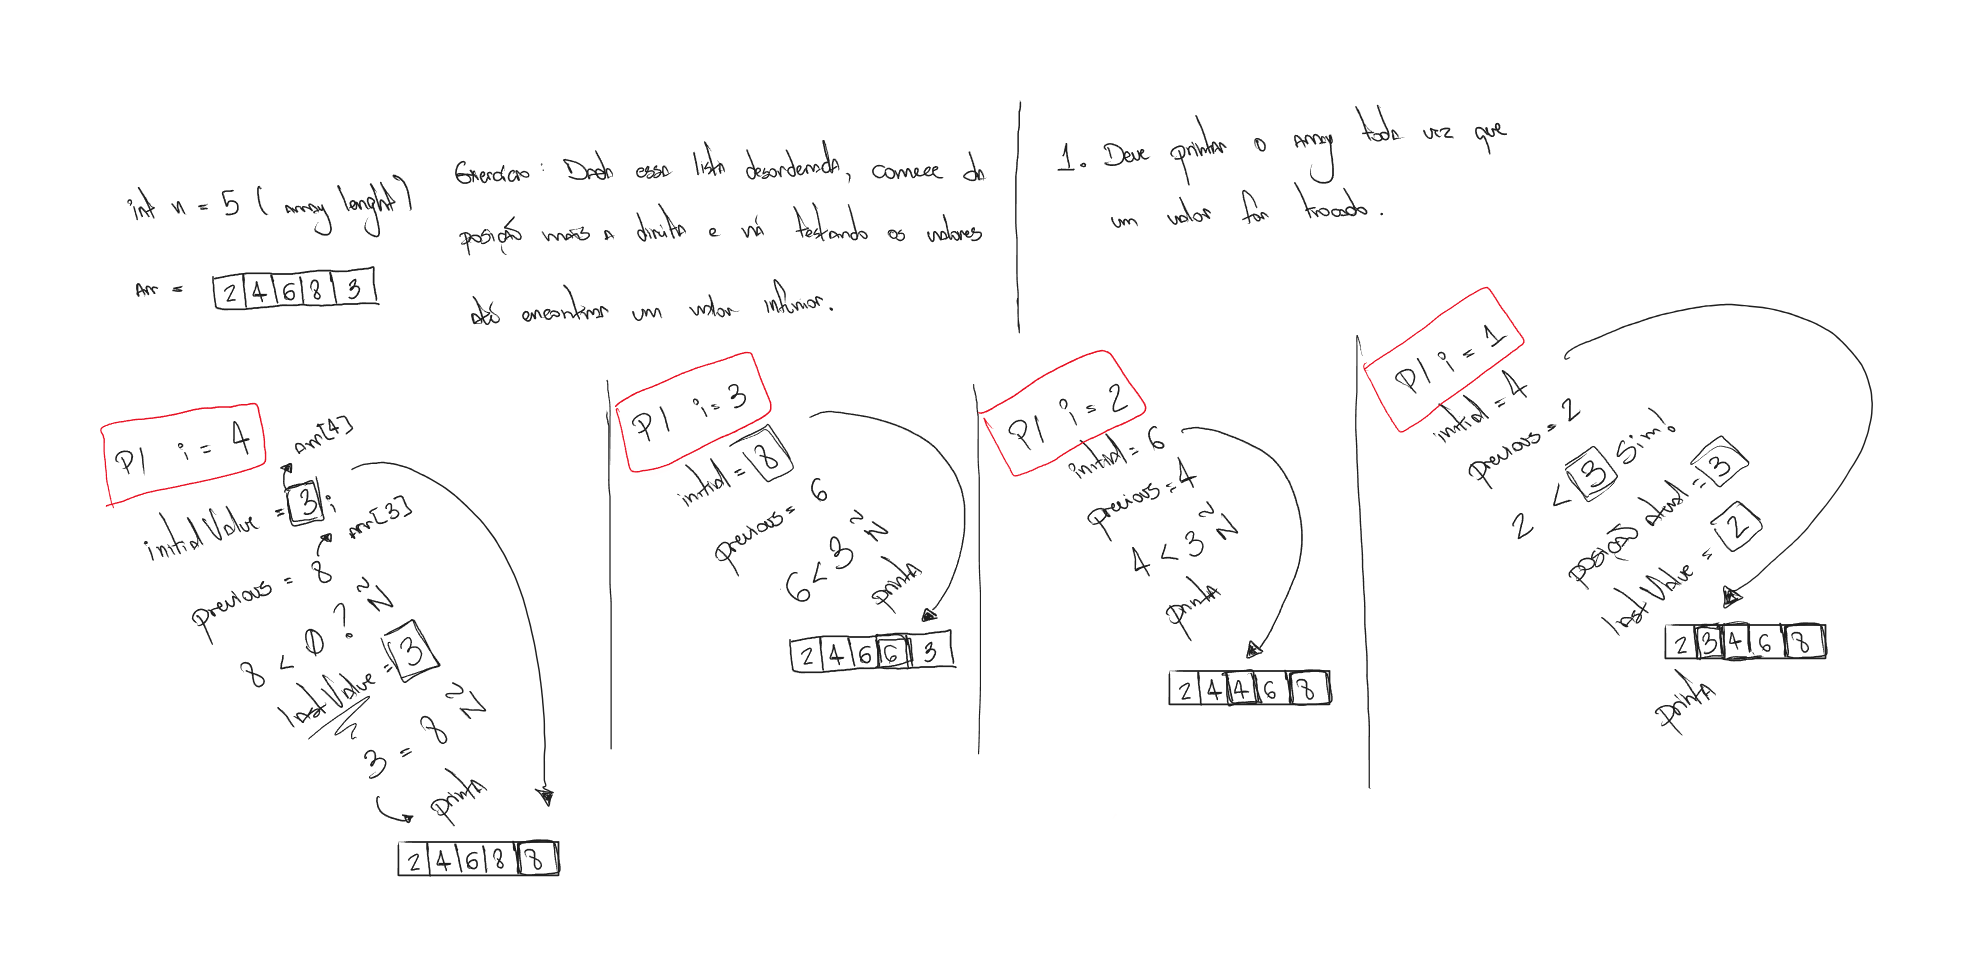 int n = 5 ( array lenght )
Arr =
2 4 6 8 3
Exercício : Dada essa lista desordenada, comece da
posição mais a direita e vá testando os valores
até encontrar um valor inferior.
1. Deve printar o array toda vez que
um valor for trocado.
P/ i = 4
arr[4]
initial Value = 3 ;
arr[3]
previous = 8
8 < 0 ? Ñ
last Value = 3
3 = 8 Ñ
printa
2 4 6 8 8
P/ i = 3
initial = 8
previous = 6
6 < 3 Ñ
printa
2 4 6 6 3
P/ i = 2
initial = 6
previous = 4
4 < 3 Ñ
printa
2 4 4 6 8
P/ i = 1
initial = 4
previous = 2
2 < 3 Sim!
posição atual = 3
last Value = 2
2 3 4 6 8
printa